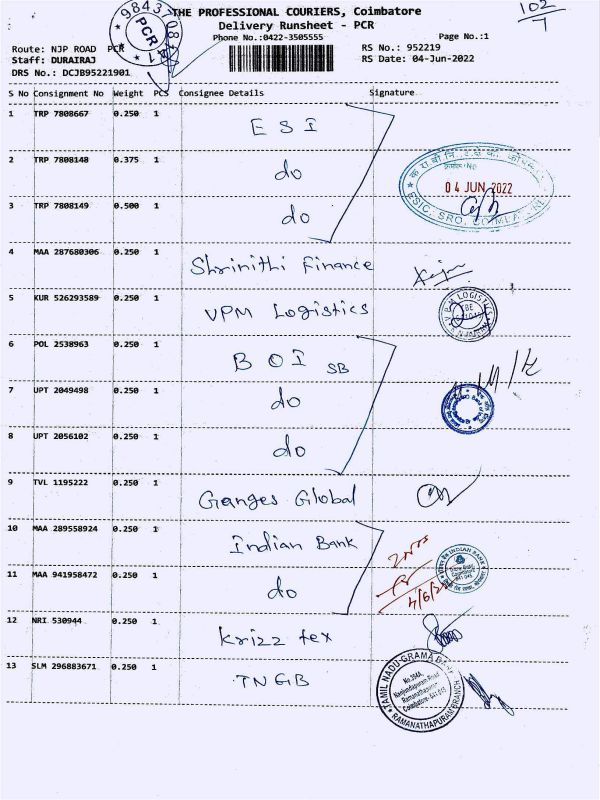 102/7
THE PROFESSIONAL COURIERS, Coimbatore
Delivery Runsheet - PCR
Phone No.:0422-3505555
Page No.:1
Route: NJP ROAD PCR
RS No.: 952219
Staff: DURAIRAJ
RS Date: 04-Jun-2022
DRS No.: DCJB95221901
PCR
S No Consignment No Weight PCS Consignee Details Signature
1 TRP 7808667 0.250 1 ESI
2 TRP 7808148 0.375 1 do
04 JUN 2022
3 TRP 7808149 0.500 1 do
4 MAA 287680306 0.250 1 Shrinithi Finance
5 KUR 526293589 0.250 1 VPM Logistics
VPM LOGISTICS
6 POL 2538963 0.250 1 BOI SB
7 UPT 2049498 0.250 1 do
8 UPT 2056102 0.250 1 do
9 TVL 1195222 0.250 1 Ganges Global
10 MAA 289558924 0.250 1 Indian Bank
INDIAN BANK
11 MAA 941958472 0.250 1 do
4/6/22
12 NRI 530944 0.250 1 Krizz tex
13 SLM 296883671 0.250 1 TNGB
TAMIL NADU GRAMA BANK
Nanjundapuram Road
Ramanathapuram
Coimbatore-641 045
RAMANATHAPURAM BRANCH